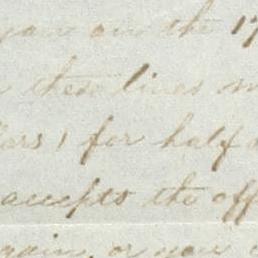 again on the 17
these lines
lars) for half
accepts the off
again, or you